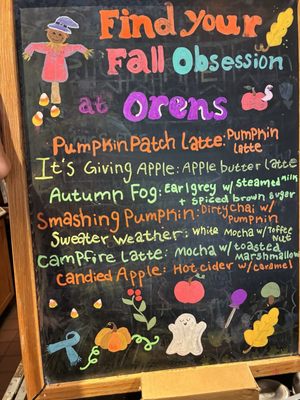 Find your
Fall Obsession
at Orens
Pumpkin Patch Latte: Pumpkin
latte
It's Giving Apple: Apple butter latte
Autumn Fog: Earl grey w/ steamed milk
+ spiced brown sugar
Smashing Pumpkin: Dirty chai w/
Pumpkin
Sweater Weather: White Mocha w/ Toffee
Nut
Campfire Latte: Mocha w/ toasted
Marshmallow
Candied Apple: Hot cider w/ caramel